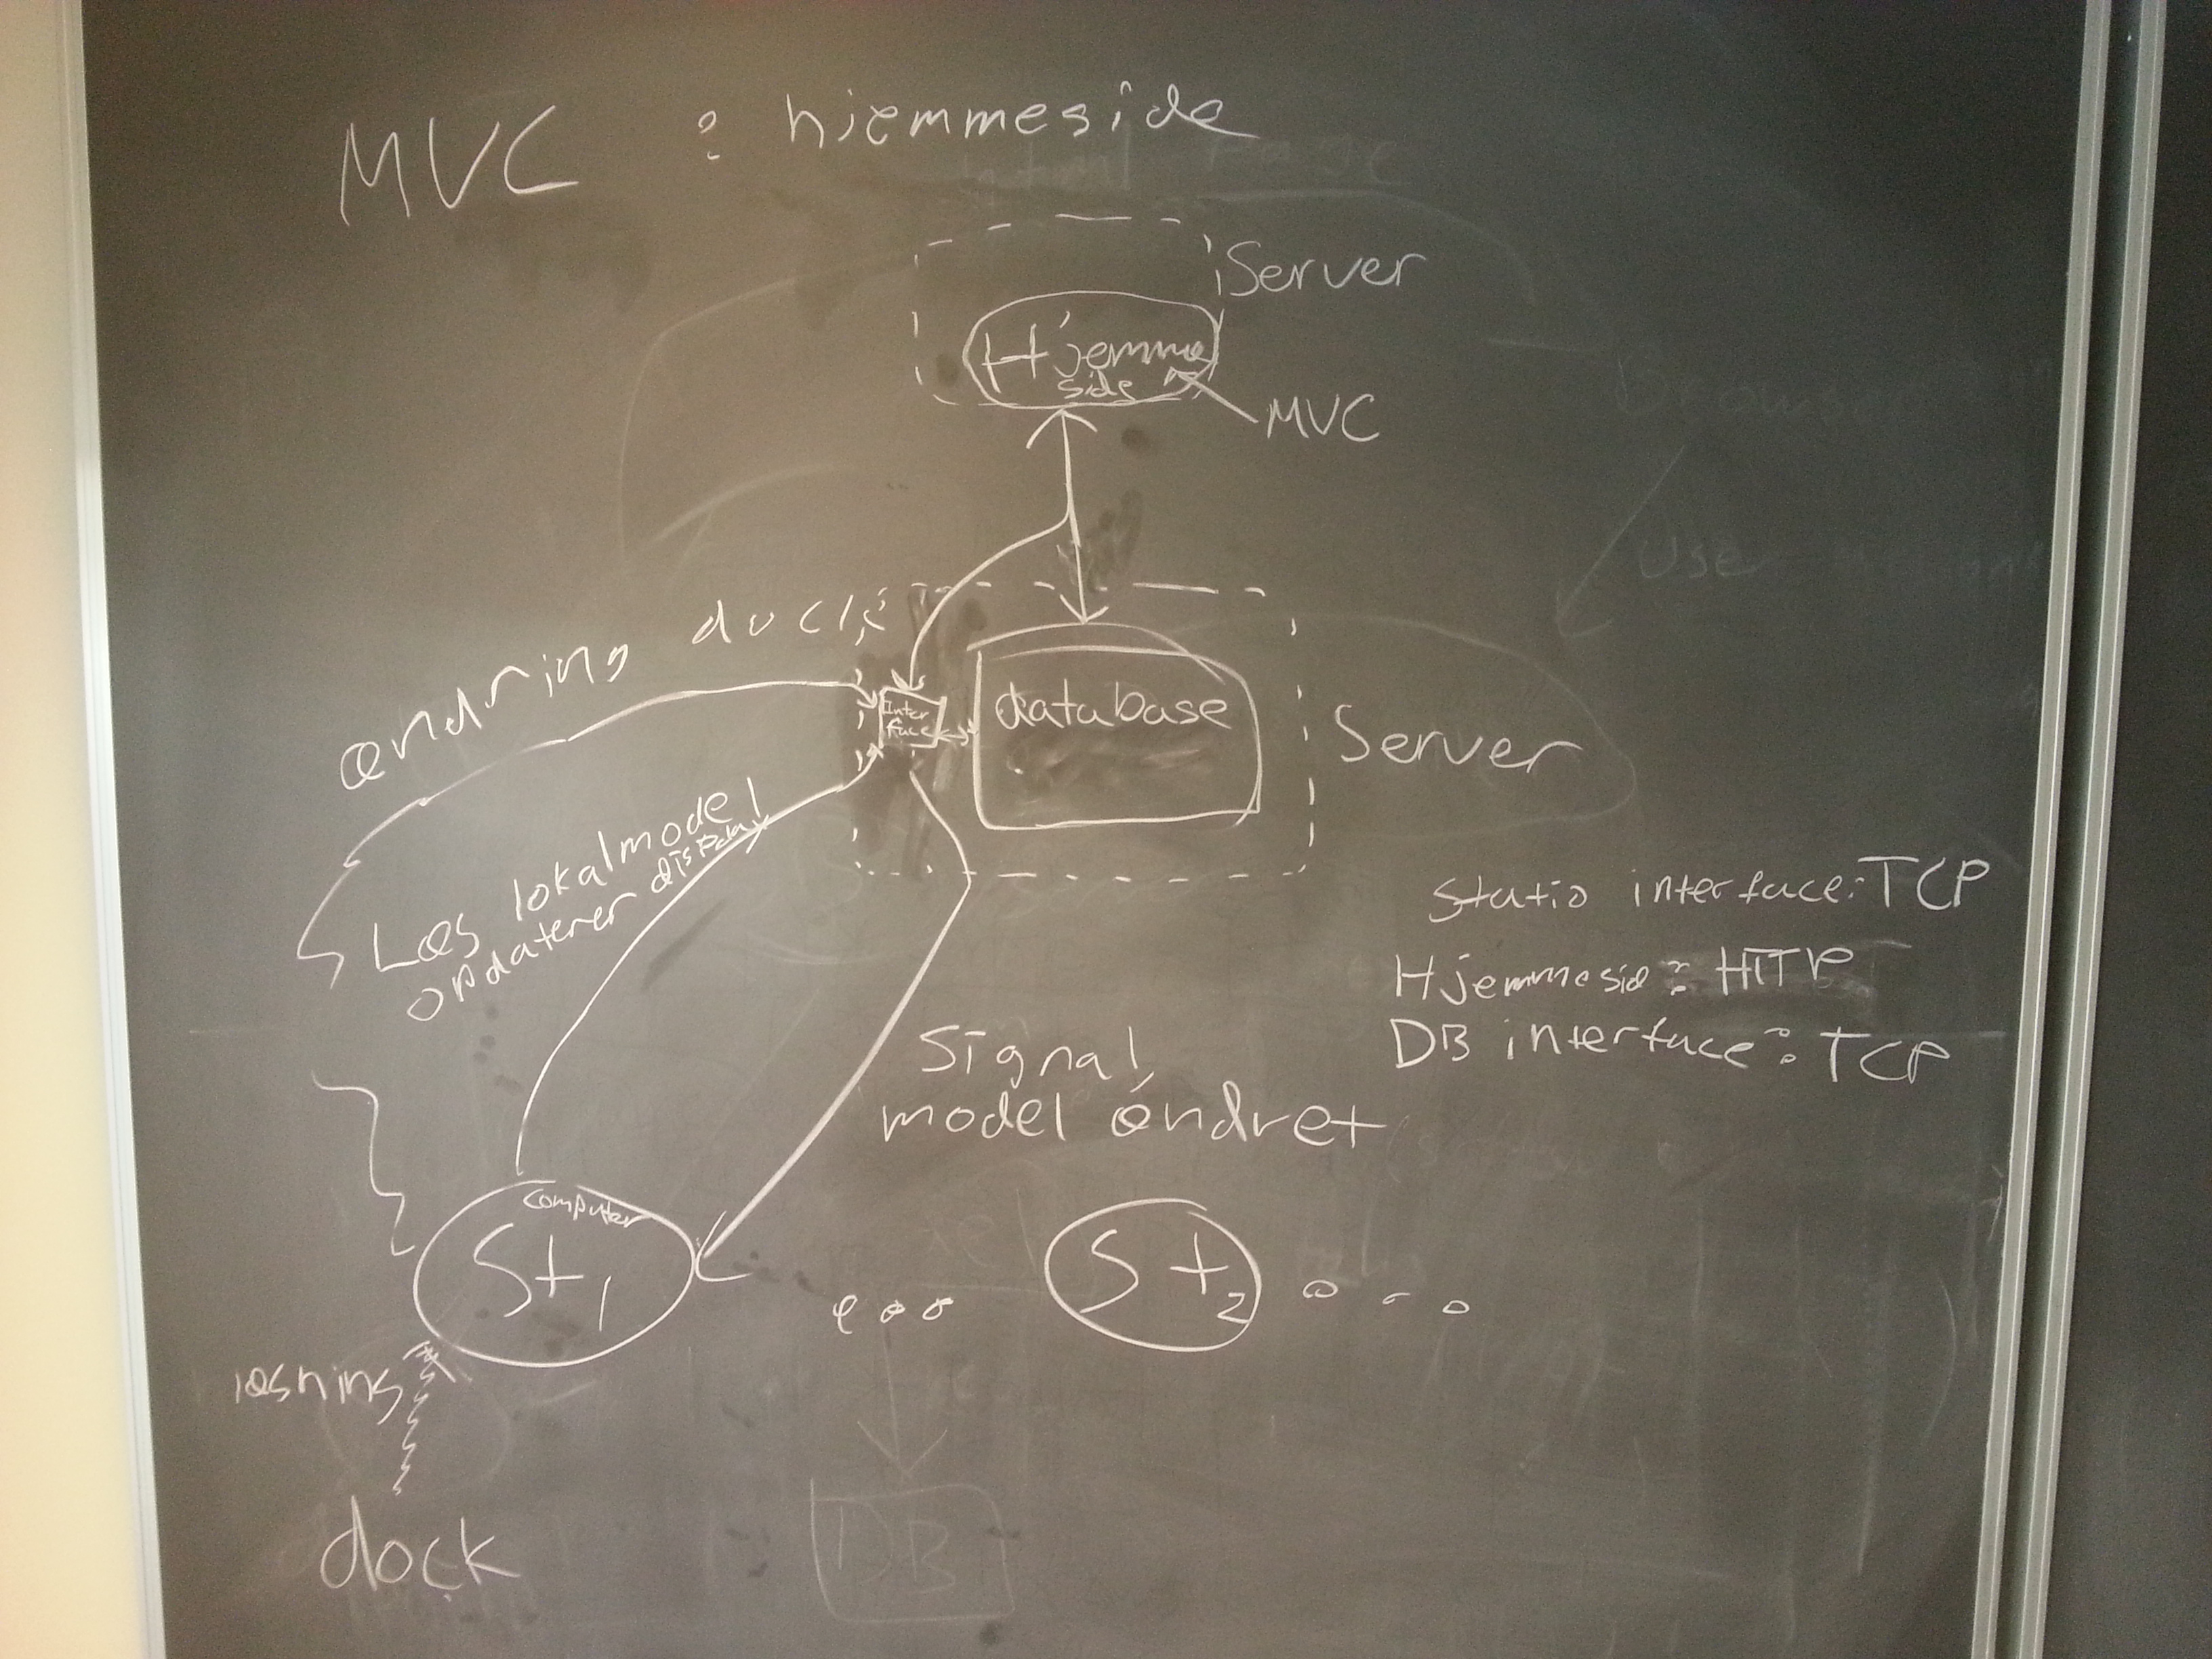 MVC : hjemmeside
Server
Hjemme
side
MVC
ændring dock
Inter
face
database
Server
Læs lokalmodel
opdaterer display
Statio interface: TCP
Hjemmesid: HTTP
DB interface: TCP
Signal
model ændret
computer
St1
St2
låsning
dock
DB